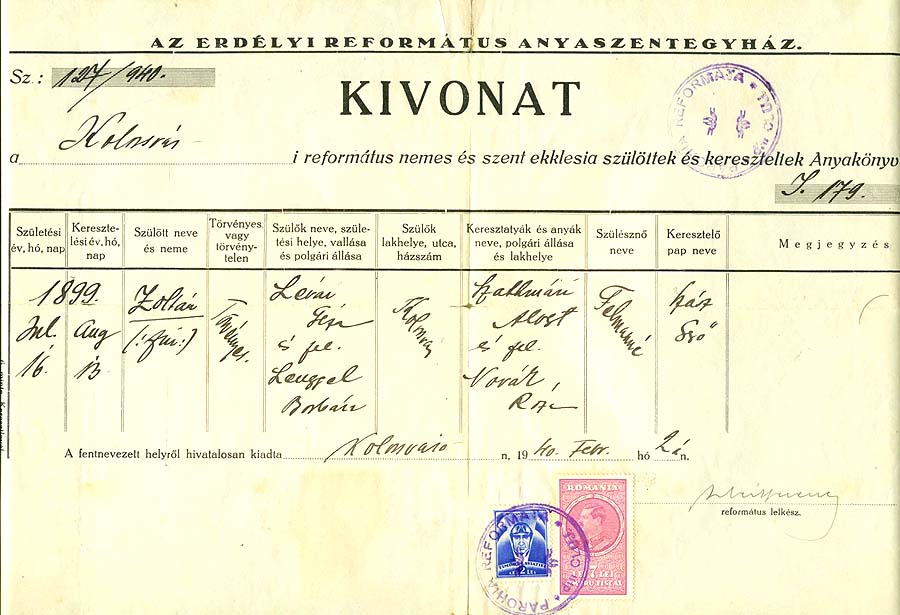 AZ ERDÉLYI REFORMÁTUS ANYASZENTEGYHÁZ.
Sz.: 127/940.
KIVONAT
PAROHIA REFORMATA
a Kolozsvár i református nemes és szent ekklesia szülöttek és kereszteltek Anyakönyv
I. 179.
Születési év, hó, nap
Keresztelési év, hó, nap
Szülött neve és neme
Törvényes vagy törvénytelen
Szülők neve, születési helye, vallása és polgári állása
Szülők lakhelye, utca, házszám
Keresztatyák és anyák neve, polgári állása és lakhelye
Szülésznő neve
Keresztelő pap neve
Megjegyzés
1899
Jul. 16.
Aug 13
Zoltán
(:fiú:)
Törvényes.
Lévai
Géza
és fel.
Lengyel
Borbára
Kolozsvár
Szathmári
és fel.
Novák
Róza
Szász
A fentnevezett helyről hivatalosan kiadta Kolozsvár n, 1940. Febr. hó 2 án.
református lelkész.
PAROHIA REFORMATA
2 LEI
ROMANIA
7 LEI
TIMBRU FISCAL